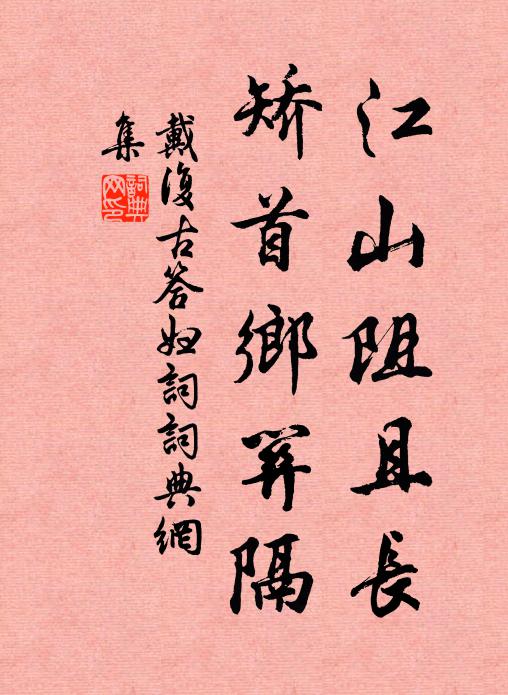 江山阻且長
矯首鄉關隔
戴復古答妇詞詞典網
集
詞典
网印